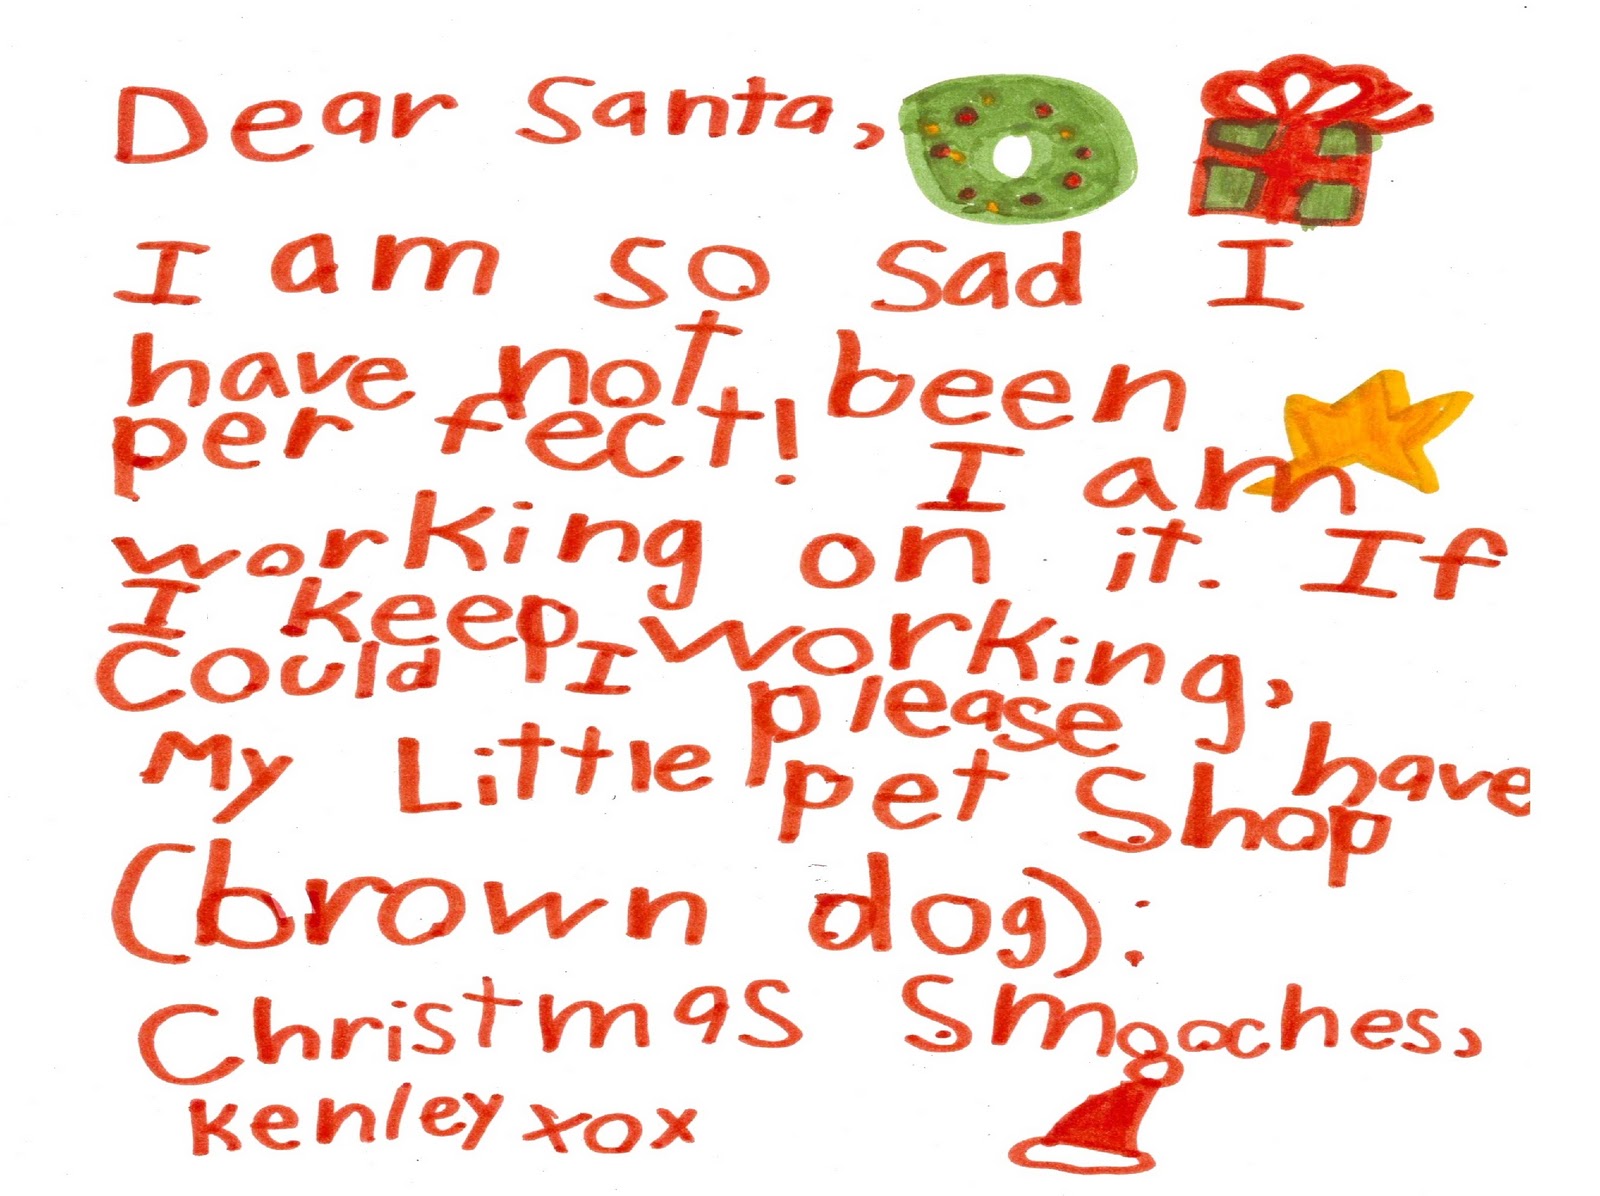 Dear Santa,
I am so sad I
have not been
per fect! I am
working on it. If
I keep working,
Could I please have
My Little pet Shop
(brown dog):
Christmas Smooches,
Kenley xox